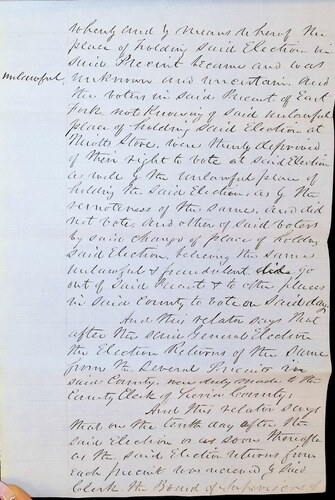 whereby and by means whereof the
place of holding said Election in
said Precinct became and was
unlawful unknown and uncertain. And
the voters in said Precinct of East
Fork not knowing of said unlawful
place of holding said Election at
Store, were thereby deprived
of their right to vote at said Election
as well by the unlawful place of
holding the said Election, as by the
remoteness of the same, and did
not vote, and other of said voters
by said change of place of holding
said Election, believing the same
unlawful & fraudulent did go
out of said Precinct & to other places
in said County to vote on said day.
And this relator says that
after the said General Election
the Election Returns of the same
from the several Precincts in
said County, were duly made to the
County Clerk of Sierra County.
And this relator says
that on the tenth day after the
said Election or as soon thereafter
as the said Election returns from
each precinct was received by said
Clerk, the Board of Supervisors of